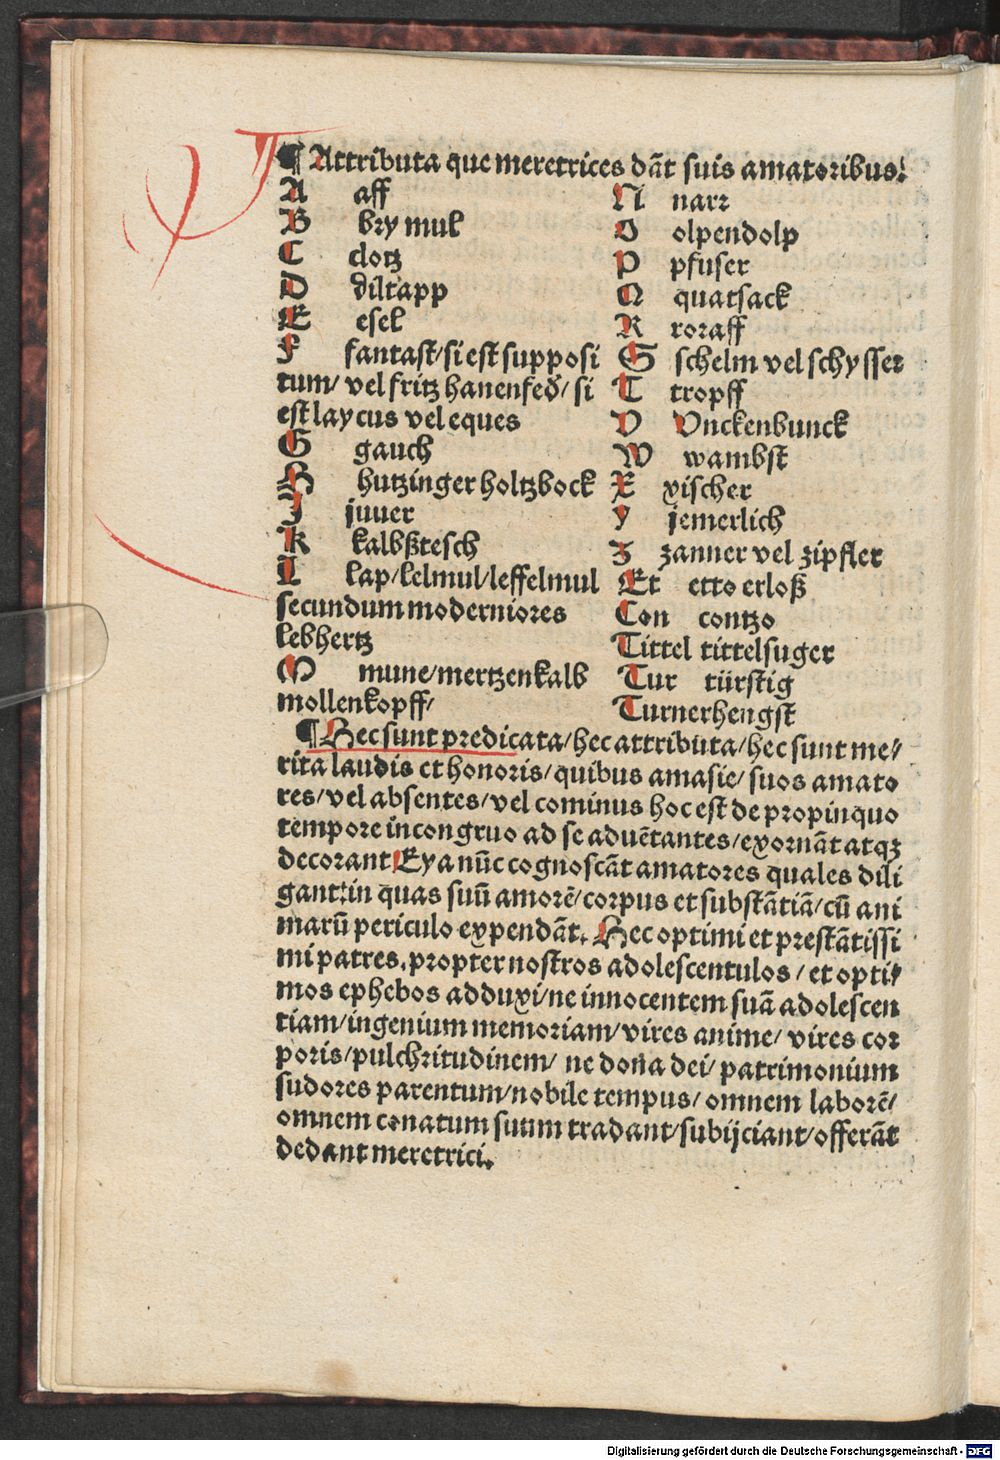 ¶ Attributa que meretrices dāt suis amatoribus.
A aff
B bry mul
C clotz
D diltapp
E esel
F fantast/ si est supposi
tum/ vel fritz hanenfed̄/ si
est laycus vel eques
G gauch
H hutzinger holtzbock
J juuer
K kalbßtesch
L lap/ lelmul/ leffelmul
secundum moderniores
lebhertz
M mune/ mertzenkalb
mollenkopff/
N narr
O olpendolp
P pfuser
Q quatsack
R roraff
S schelm vel schysser
T tropff
V Vnckenbunck
W wambst
X xischer
y jemerlich
Z zanner vel zipfler
Et etto erloß
Con contzo
Tittel tittelsuger
Tur türstig
Turnerhengst
¶ Hec sunt predicata/ hec attributa/ hec sunt me/
rita laudis et honoris/ quibus amasie/ suos amato
res/ vel absentes/ vel cominus hoc est de propinquo
tempore incongruo ad se aduētantes/ exornāt atqꝫ
decorant Eya nūc cognoscāt amatores quales dili
gant: in quas suū amorē/ corpus et substātiā/ cū ani
marū periculo expendāt. Hec optimi et prestātissi
mi patres. propter nostros adolescentulos/ et opti/
mos ephebos adduxi/ ne innocentem suā adolescen
tiam/ ingenium memoriam/ vires anime/ vires cor
poris/ pulchritudinem/ ne dona dei/ patrimonium
sudores parentum/ nobile tempus/ omnem laborē/
omnem conatum suum tradant/ subijciant/ offerāt
dedant meretrici.
Digitalisierung gefördert durch die Deutsche Forschungsgemeinschaft - DFG